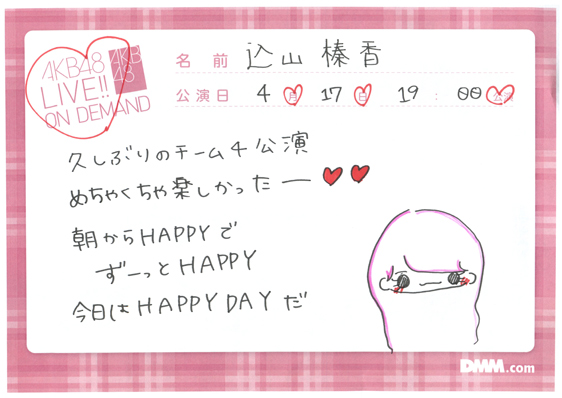 AKB48
LIVE!!
ON DEMAND
AKB
48
名前 込山 榛香
公演日 4月 17日 19:00公演
久しぶりのチーム4公演
めちゃくちゃ楽しかったー
朝からHAPPYで
ずーっとHAPPY
今日はHAPPY DAYだ
DMM.com